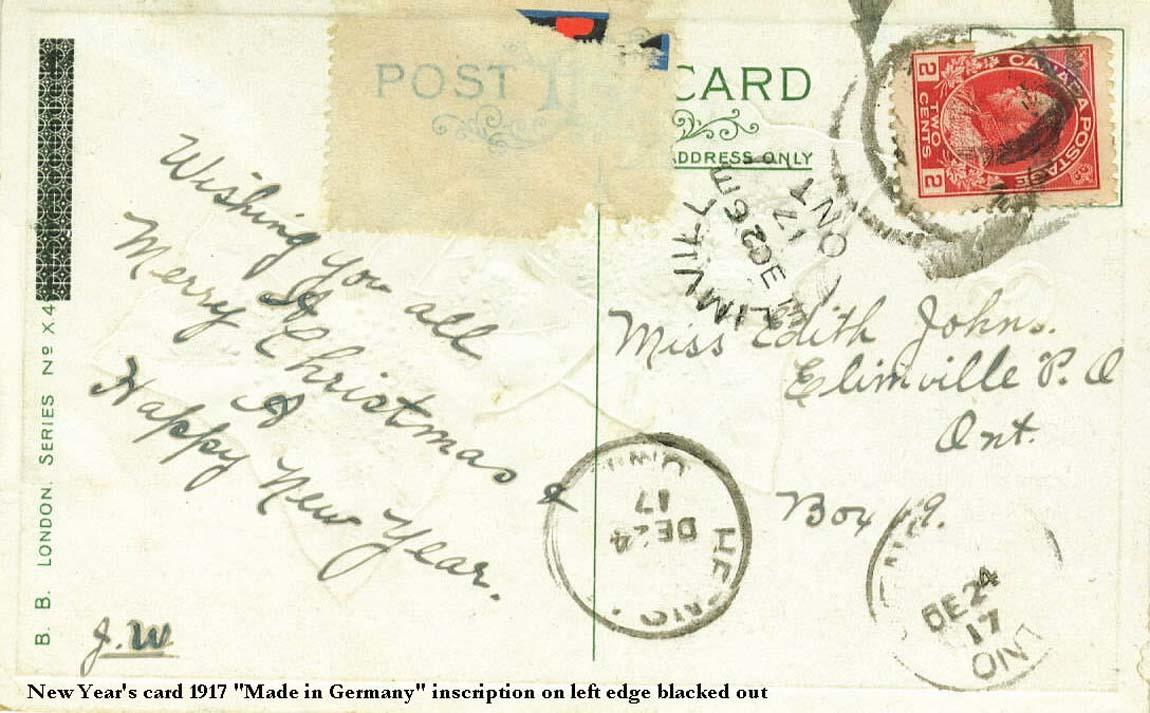 POST CARD
ADDRESS ONLY
CANADA POSTAGE
2 TWO CENTS 2
B. B. LONDON. SERIES No X 4
Wishing you all
A
Merry Christmas &
A
Happy New Year.
J. W
Miss Edith Johns.
Elimville P. O
Ont.
Box 19.
ONT
17
DE 24
17
DE 24
17
ON
New Year's card 1917 "Made in Germany" inscription on left edge blacked out